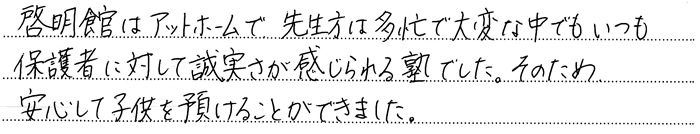 啓明館はアットホームで 先生方は多忙で大変な中でも いつも
保護者に対して誠実さが感じられる塾でした。そのため
安心して子供を預けることができました。